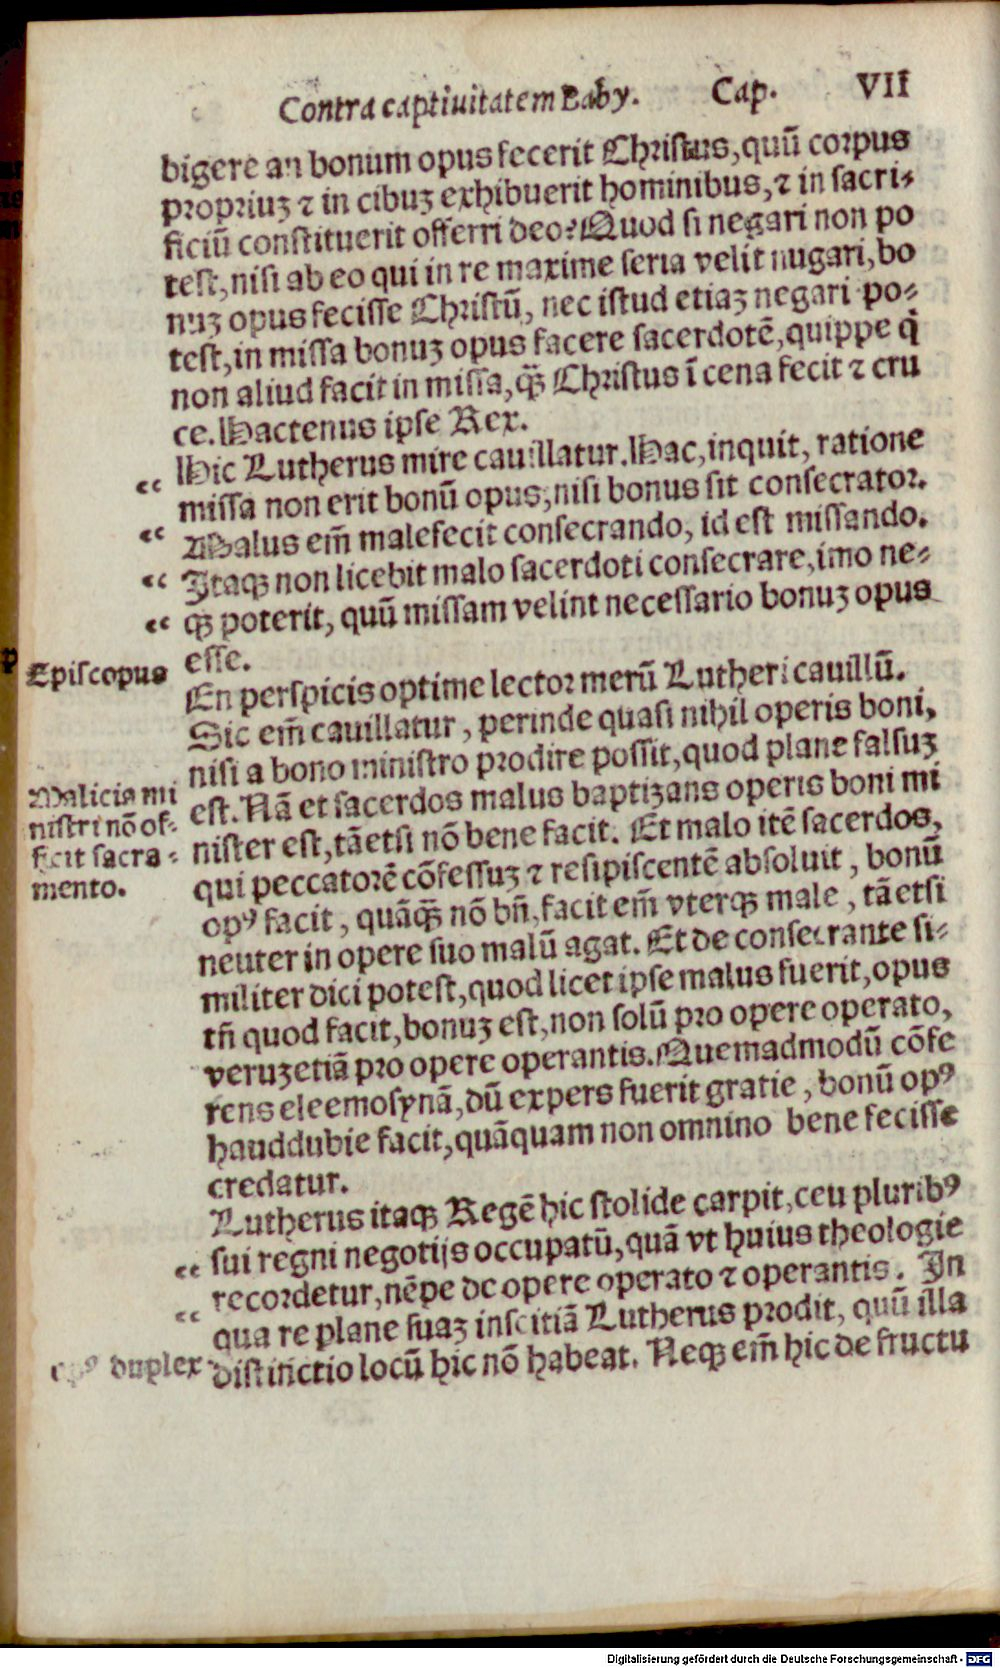 Contra captiuitatem Baby. Cap. VII
bigere an bonum opus fecerit Christus, quū corpus
propriuʒ ⁊ in cibuʒ exhibuerit hominibus, ⁊ in sacri⸗
ficiū constituerit offerri deo? Quod si negari non po
test, nisi ab eo qui in re maxime seria velit nugari, bo
nuʒ opus fecisse Christū, nec istud etiaʒ negari po⸗
test, in missa bonuʒ opus facere sacerdotē, quippe q̇
non aliud facit in missa, q̄ꝫ Christus ī cena fecit ⁊ cru
ce. Hactenus ipse Rex.
Hic Lutherus mire cauillatur. Hac, inquit, ratione
“ missa non erit bonū opus, nisi bonus sit consecrator.
“ Malus em̄ malefecit consecrando, id est missando.
“ Itaqꝫ non licebit malo sacerdoti consecrare, imo ne⸗
“ qꝫ poterit, quū missam velint necessario bonuʒ opus
esse.
Episcopus
En perspicis optime lector merū Lutheri cauillū.
Sic em̄ cauillatur, perinde quasi nihil operis boni,
nisi a bono ministro prodire possit, quod plane falsuʒ
Malicia mi
nistri nō of⸗
ficit sacra⸗
mento.
est. Nā et sacerdos malus baptiʒans operis boni mi
nister est, tāetsi nō bene facit. Et malo itē sacerdos,
qui peccatorē cōfessuʒ ⁊ resipiscentē absoluit, bonū
opꝰ facit, quāqꝫ̄ nō bn̄, facit em̄ vterqꝫ male, tāetsi
neuter in opere suo malū agat. Et de consecrante si⸗
militer dici potest, quod licet ipse malus fuerit, opus
tn̄ quod facit, bonuʒ est, non solū pro opere operato,
veruʒ etiā pro opere operantis. Quemadmodū cōfe
rens eleemosynā, dū expers fuerit gratie, bonū opꝰ
hauddubie facit, quāquam non omnino bene fecisse
credatur.
Lutherus itaqꝫ Regē hic stolide carpit, ceu pluribꝰ
“ sui regni negotijs occupatū, quā vt huius theologie
“ recordetur, nēpe de opere operato ⁊ operantis. In
qua re plane suaʒ inscitiā Lutherus prodit, quū illa
opꝰ duplex
distinctio locū hic nō habeat. Neqꝫ em̄ hic de fructu
Digitalisierung gefördert durch die Deutsche Forschungsgemeinschaft - DFG